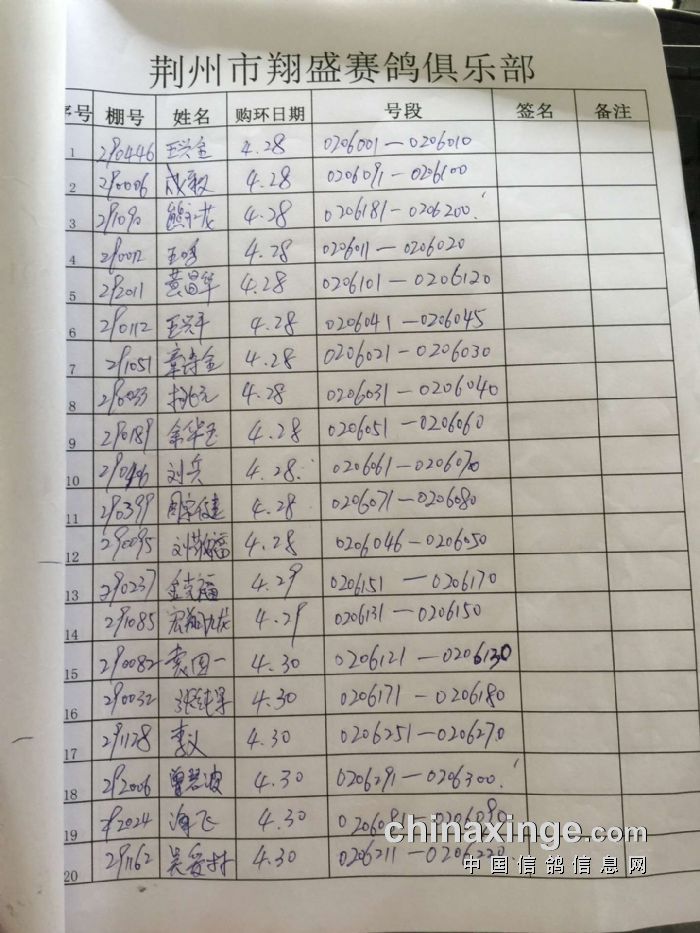 荆州市翔盛赛鸽俱乐部
序号 棚号 姓名 购环日期 号段 签名 备注
1 290446 王兴全 4.28 0206001—0206010
2 290006 成毅 4.28 0206091—0206100
3 291090 熊 龙 4.28 0206181—0206200
4 290012 王 4.28 0206011—0206020
5 292011 黄昌华 4.28 0206101—0206120
6 290112 王兴平 4.28 0206041—0206045
7 291051 章诗全 4.28 0206021—0206030
8 290033 4.28 0206031—0206040
9 290189 余华玉 4.28 0206051—0206060
10 刘兵 4.28 0206061—0206070
11 290399 周宗健 4.28 0206071—0206080
12 290095 刘敬福 4.28 0206046—0206050
13 290237 金克福 4.29 0206151—0206170
14 291085 宏翔九龙 4.29 0206131—0206150
15 290082 袁国一 4.30 0206121—0206130
16 290032 张纯 4.30 0206171—0206180
17 291128 李义 4.30 0206251—0206270
18 292006 曾碧波 4.30 0206291—0206300
19 292024 飞 4.30 0206081—0206090
20 291162 吴 村 4.30 0206211—0206220
chinaxinge.com
中国信鸽信息网